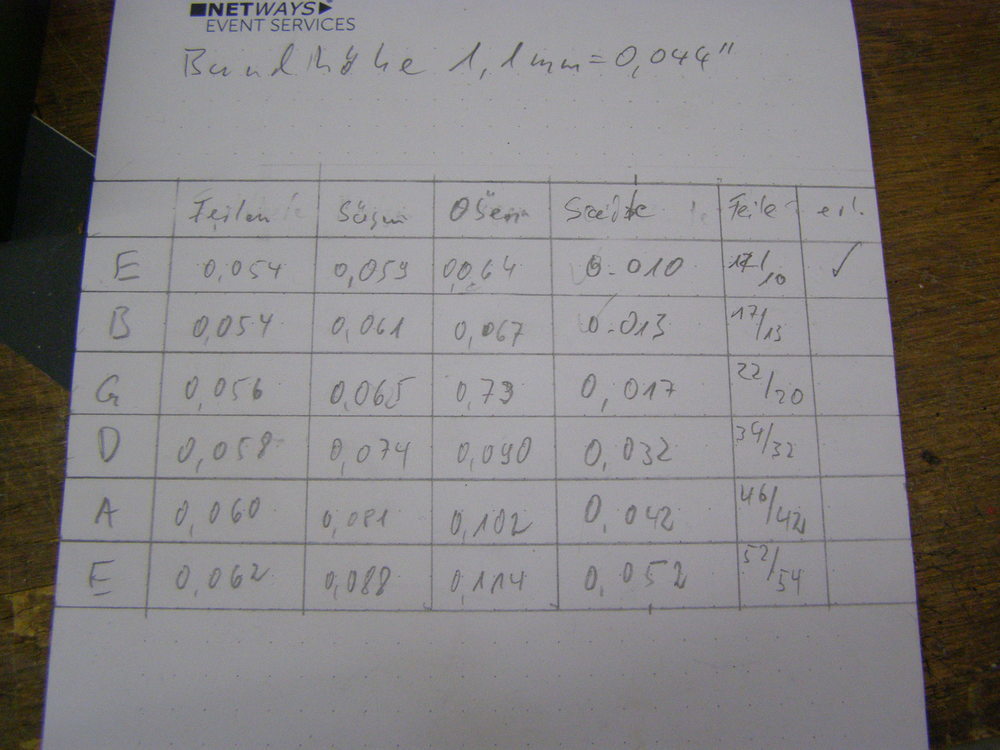 NETWAYS
EVENT SERVICES
Bundhöhe 1,1mm = 0,044"
Feilen Sägen Ösen Saite Feile erl.
E 0,054 0,059 0,064 0.010 /10 ✓
B 0,054 0,061 0,067 0.013 17/13
G 0,056 0,065 0,73 0,017 22/20
D 0,058 0,074 0,090 0,032 34/32
A 0,060 0,081 0,102 0,042 46/42
E 0,062 0,088 0,114 0,052 52/54